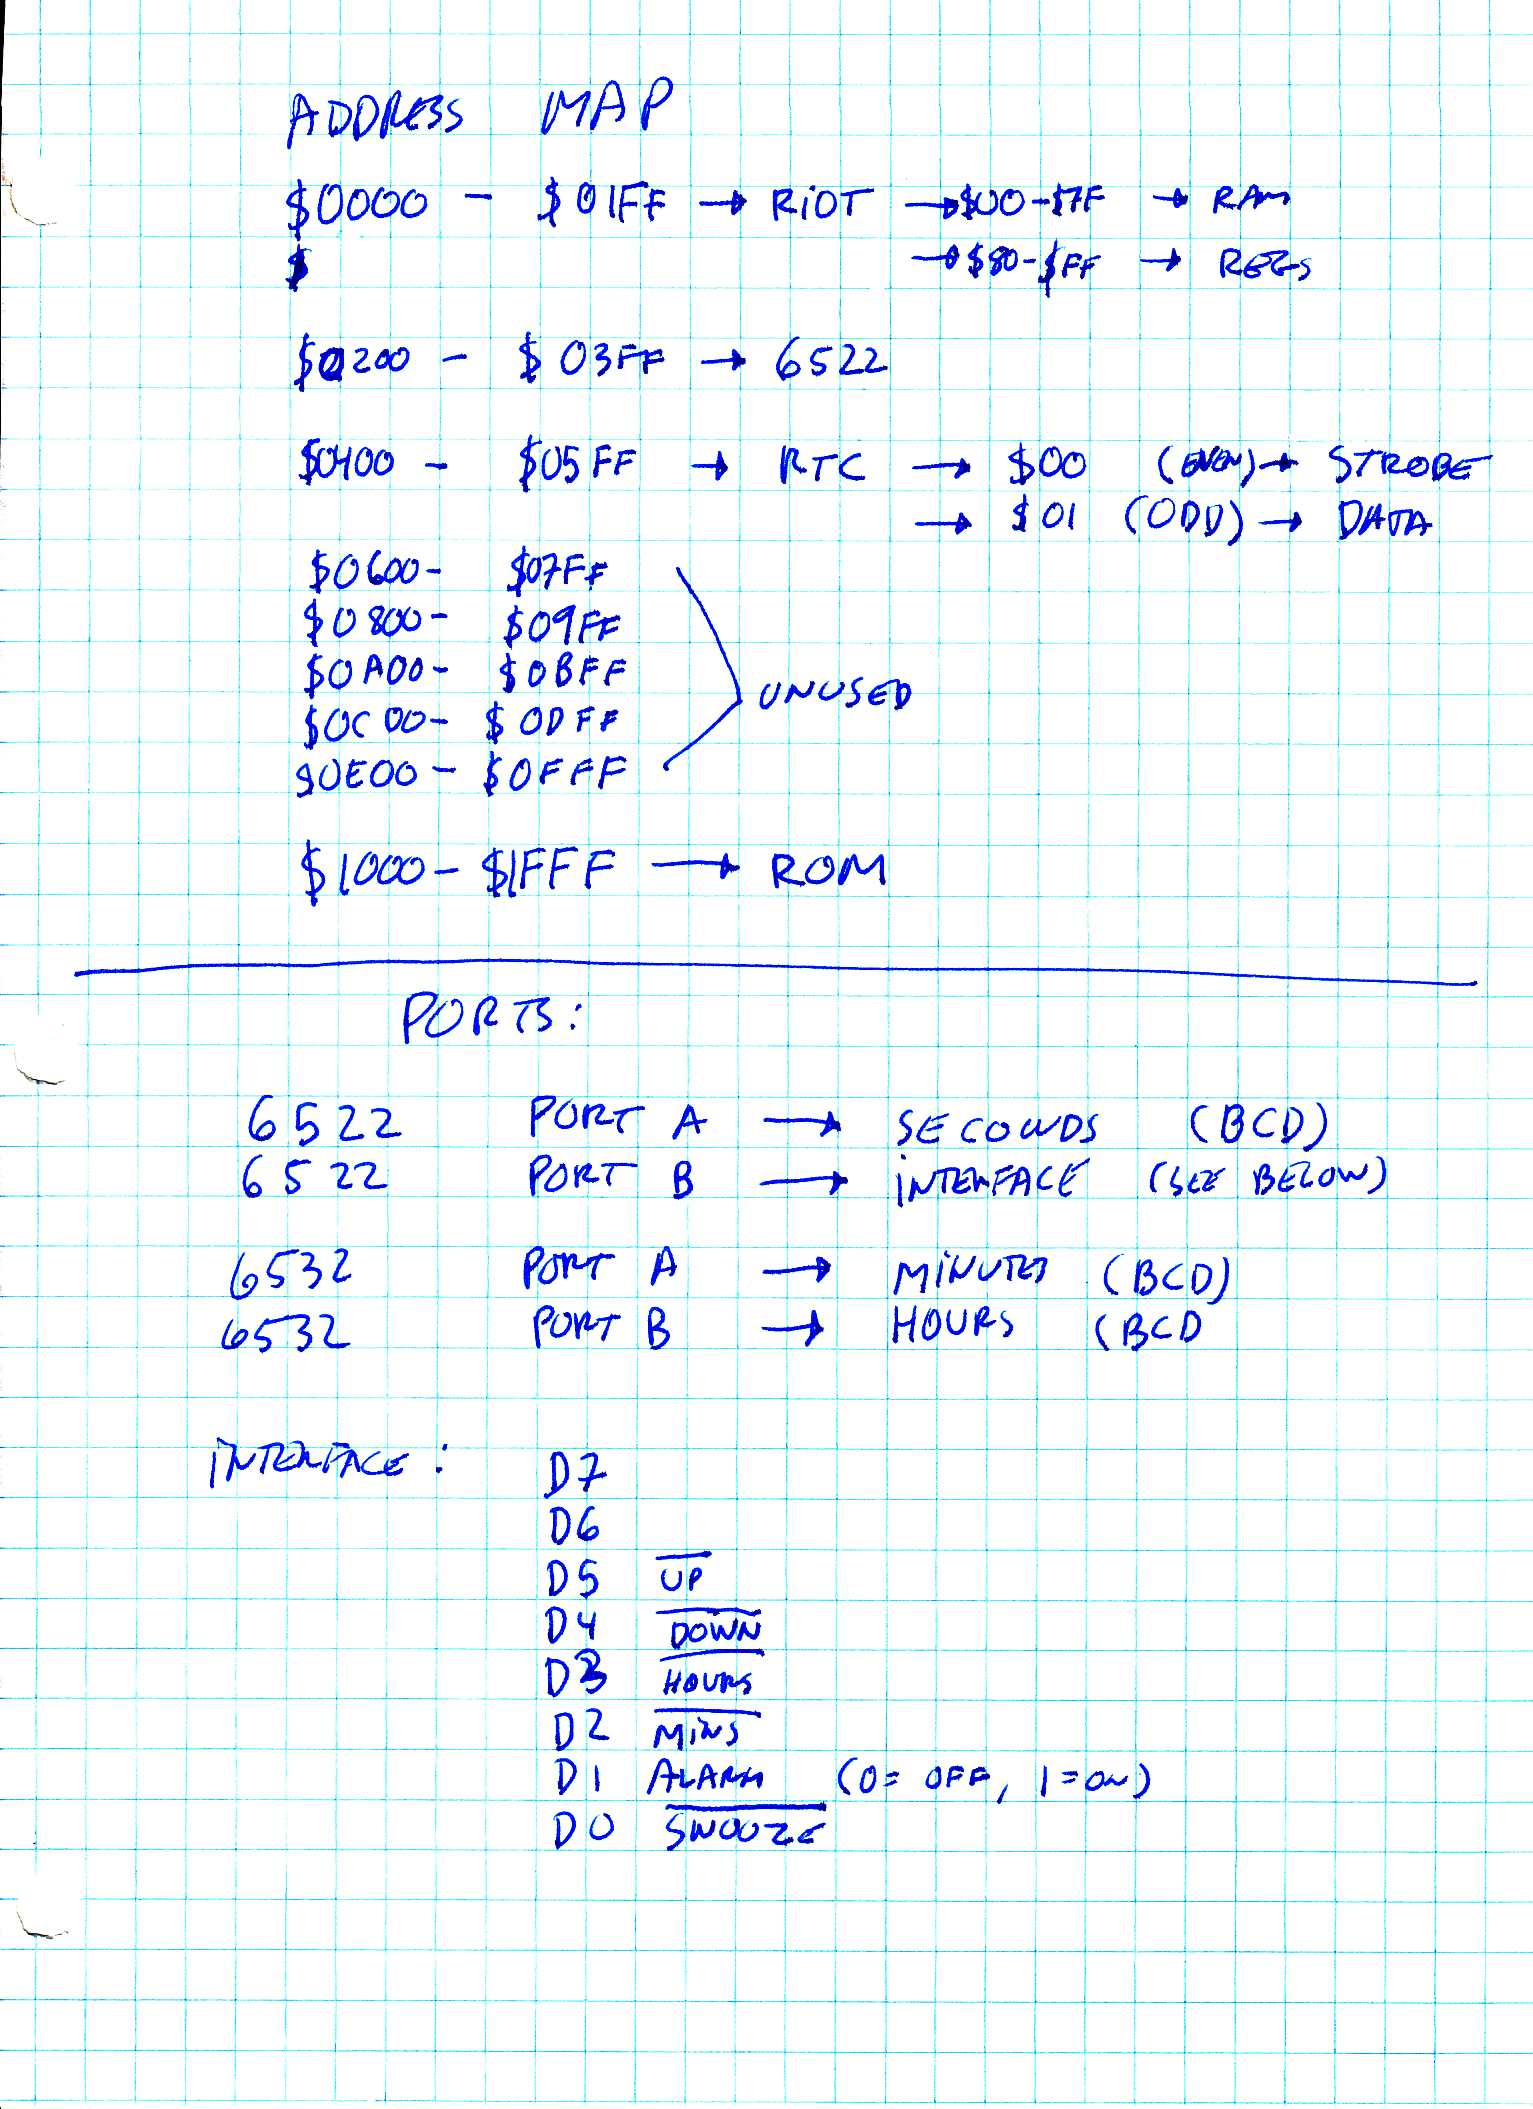 ADDRESS MAP
$0000 - $01FF → RIOT → $00-$7F → RAM
$ → $80-$FF → REGS
$0200 - $03FF → 6522
$0400 - $05FF → RTC → $00 (EVEN) → STROBE
→ $01 (ODD) → DATA
$0600- $07FF
$0800- $09FF
$0A00- $0BFF
UNUSED
$0C00- $0DFF
$0E00- $0FFF
$1000- $1FFF → ROM
PORTS:
6522 PORT A → SECONDS (BCD)
6522 PORT B → INTERFACE (SEE BELOW)
6532 PORT A → MINUTES (BCD)
6532 PORT B → HOURS (BCD
INTERFACE: D7
D6
D5 UP
D4 DOWN
D3 HOURS
D2 MINS
D1 ALARM (0= OFF, 1=ON)
D0 SNOOZE